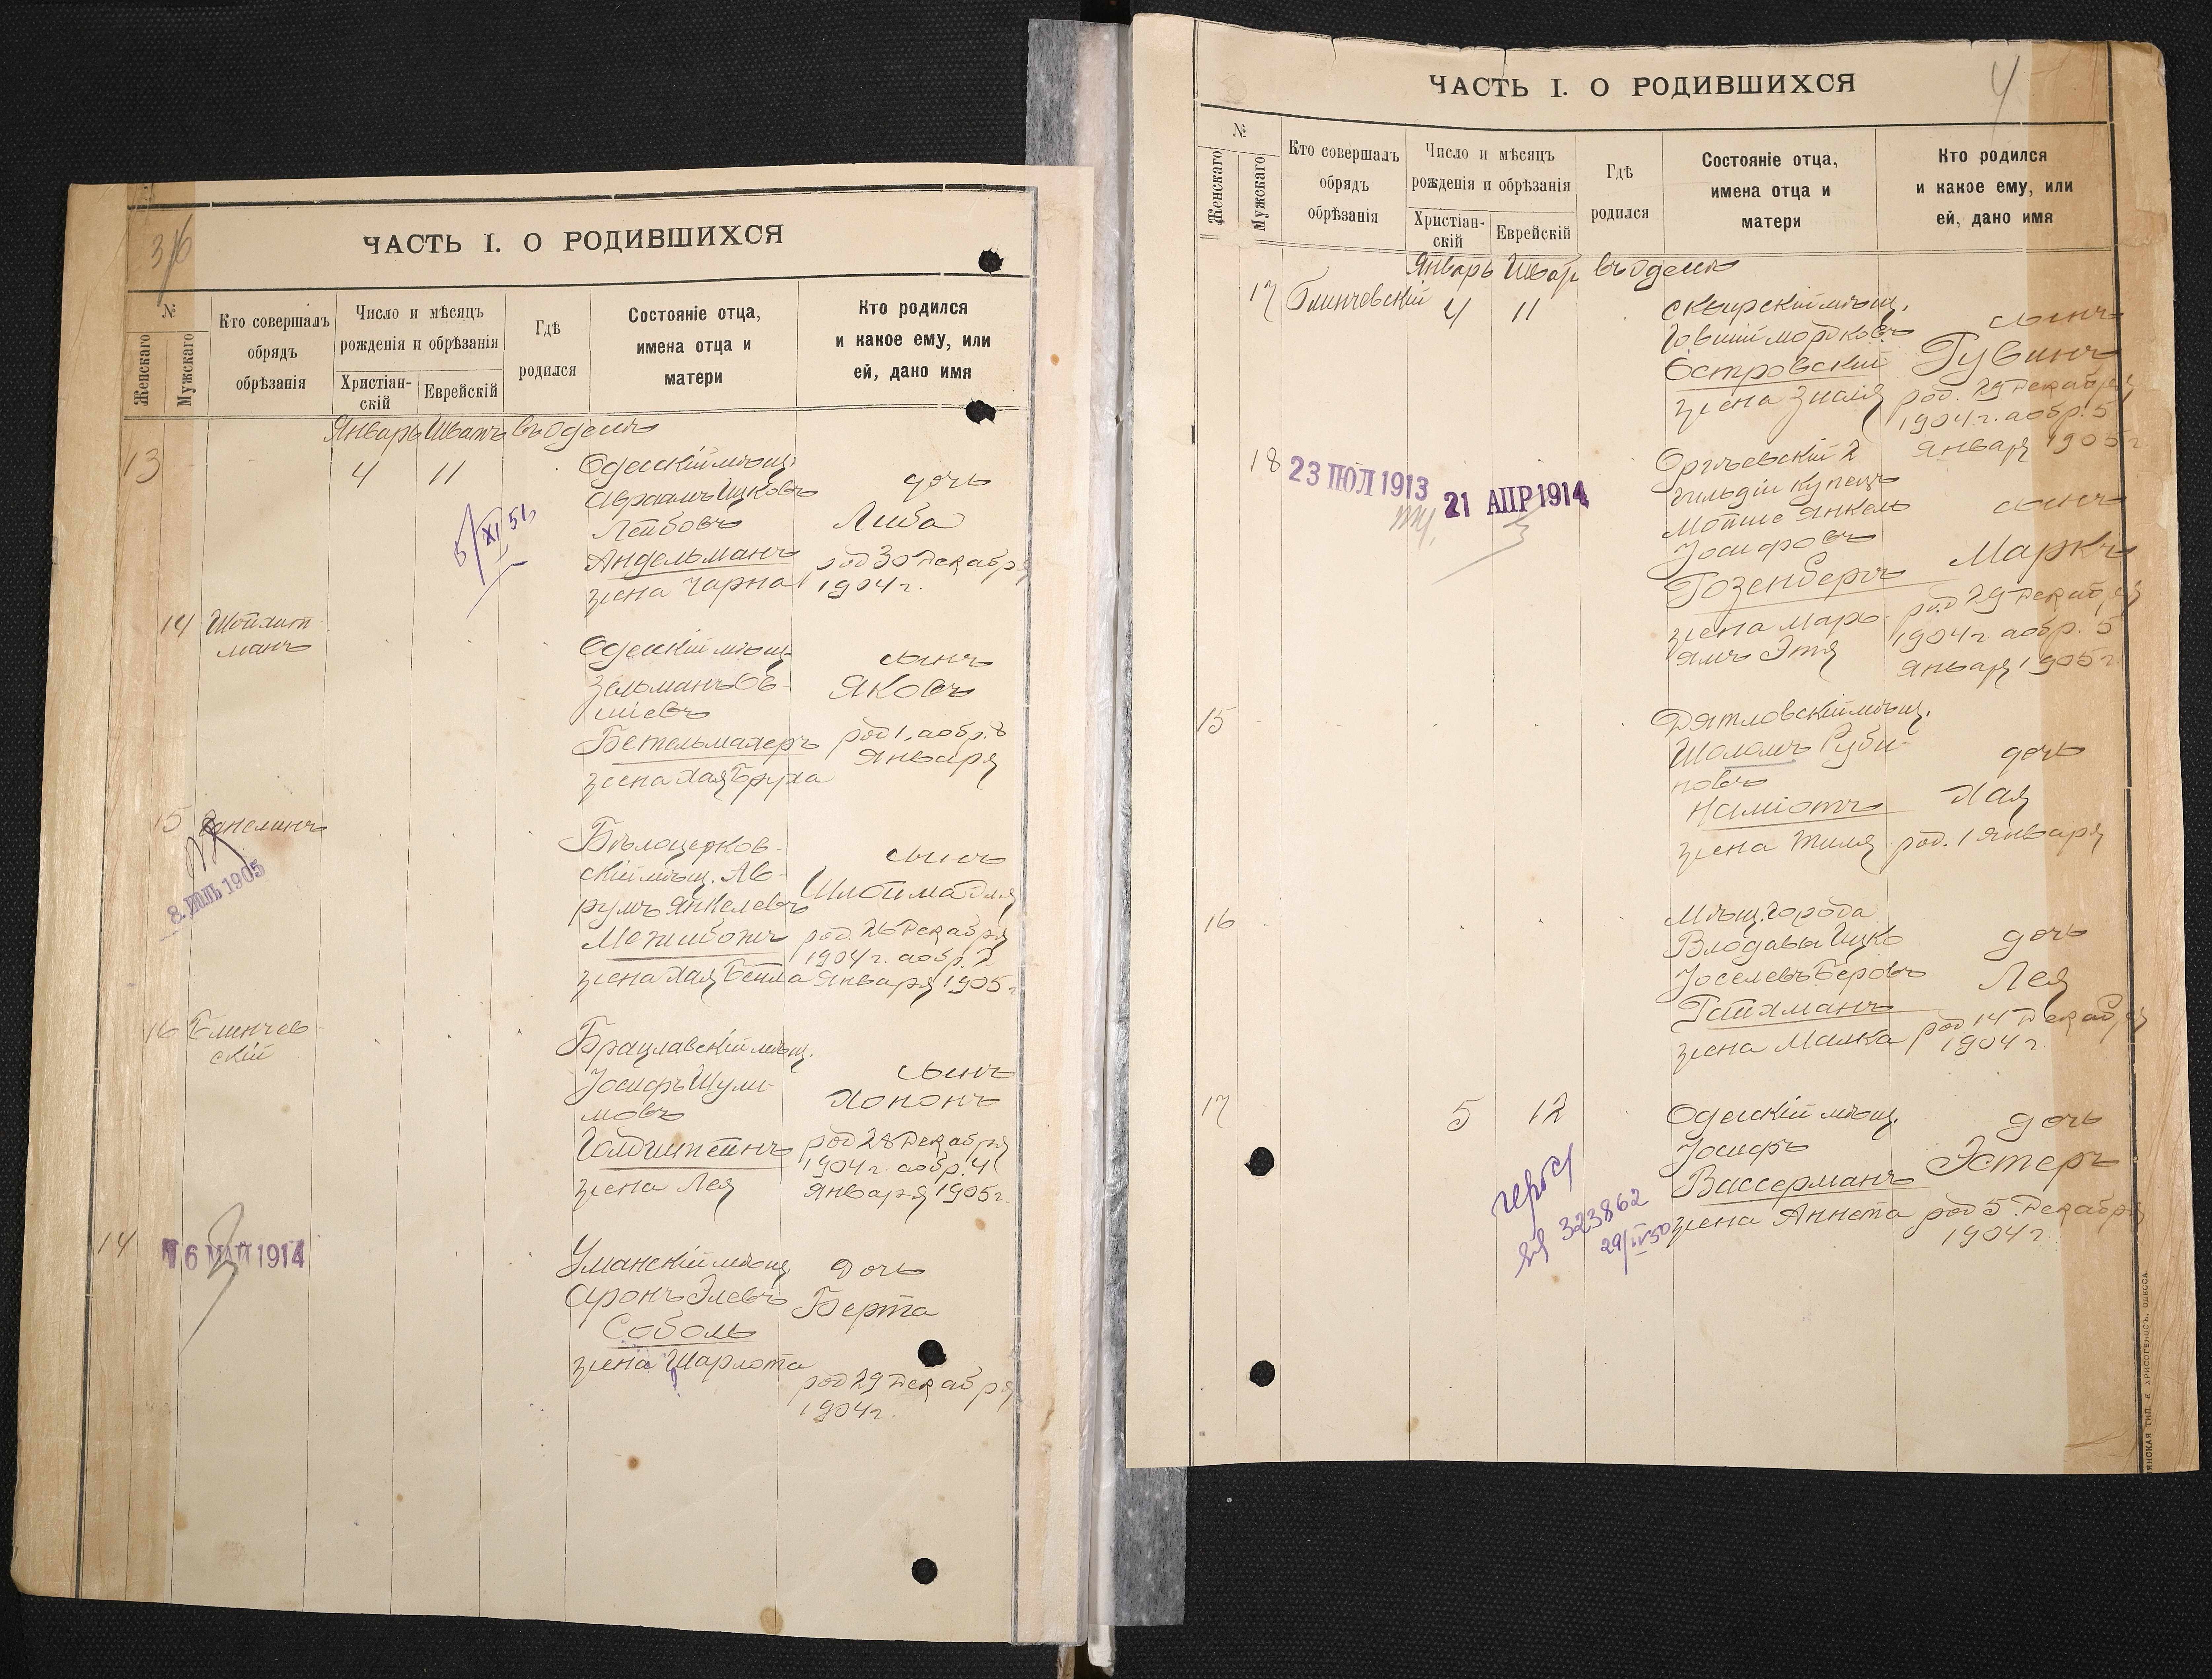 3/6
ЧАСТЬ I. О РОДИВШИХСЯ
№
Женскаго
Мужскаго
Кто совершалъ
обрядъ
обрѣзанія
Число и мѣсяцъ
рожденія и обрѣзанія
Христіан-
скій
Еврейскій
Гдѣ
родился
Состояніе отца,
имена отца и
матери
Кто родился
и какое ему, или
ей, дано имя
Январь Шватъ въ Одессѣ
13
4
11
Одесскій мѣщ.
Авраамъ Ицковъ
Лейбовъ
Андельманъ
жена Чарна
дочь
Либа
род 30 декабря
1904 г.
5/XI 51
14
Шойхит
манъ
Одесскій мѣщ
Зельманъ Ов-
шіевъ
Бетельмахеръ
жена Хая Бруха
сынъ
Яковъ
род 1, а обр. 8
Января
15
8. ІЮЛЬ 1905
Бѣлоцерков-
скій мѣщ. Ав-
румъ Янкелевъ
Межибожъ
жена Хая Бейла
сынъ
Шлойма
род. 26 декабря
1904 г. а обр. 2
Января 1905 г
16
Блинчев
скій
Брацлавскій мѣщ.
Іосифъ Шули-
мовъ
Голдштейнъ
жена Лея
сынъ
Хононъ
род 28 декабря
1904 г. а обр. 4
Января 1905 г.
14
16 МАЙ 1914
Уманскій мѣщ.
Аронъ Элевъ
Соболь
жена Шарлота
дочь
Берта
род 29 декабря
1904 г.
4
ЧАСТЬ I. О РОДИВШИХСЯ
№
Женскаго
Мужскаго
Кто совершалъ
обрядъ
обрѣзанія
Число и мѣсяцъ
рожденія и обрѣзанія
Христіан-
скій
Еврейскій
Гдѣ
родился
Состояніе отца,
имена отца и
матери
Кто родился
и какое ему, или
ей, дано имя
Январь Шват въ Одессѣ
17
Блинчевскій
4
11
Сквирскій мѣщ.
Говшій Мордковъ
Островскій
жена Знаія
сынъ
Рувинъ
род. 29 декабря
1904 г. а обр. 5
Января 1905 г
18
23 ІЮЛ 1913
21 АПР 1914
Оргѣевскій 2
гильдіи купецъ
Мойше Янкель
Іосифовъ
Розенбергъ
жена Марь-
ямъ Этя
сынъ
Маркъ
род 29 декабря
1904 г а обр. 5
Января 1905 г
15
Дятловскій мѣщ.
Шоломъ Руби-
новъ
Наміотъ
жена Тиля
дочь
Хая
род. 1 Января
16
Мѣщ. города
Влодавы Ицко
Іоселевъ Беровъ
Райхманъ
жена Малка
дочь
Лея
род 14 декабря
1904 г
17
5
12
Одесскій мѣщ.
Іосифъ
Вассерманъ
жена Аннета
дочь
Эстеръ
род 5 декабря
1904 г
323862
29/IV 50